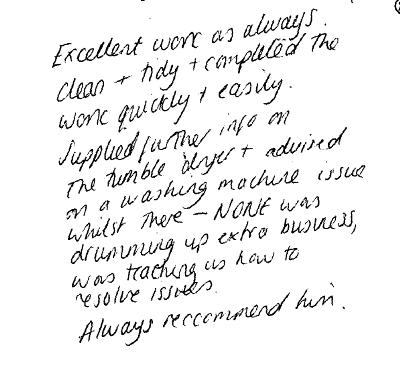 Excellent work as always.
Clean + tidy + completed the
work quickly + easily.
Supplied further info on
the tumble dryer + advised
on a washing machine issue
whilst there - NONE was
drumming up extra business,
was teaching us how to
resolve issues.
Always reccommend him.